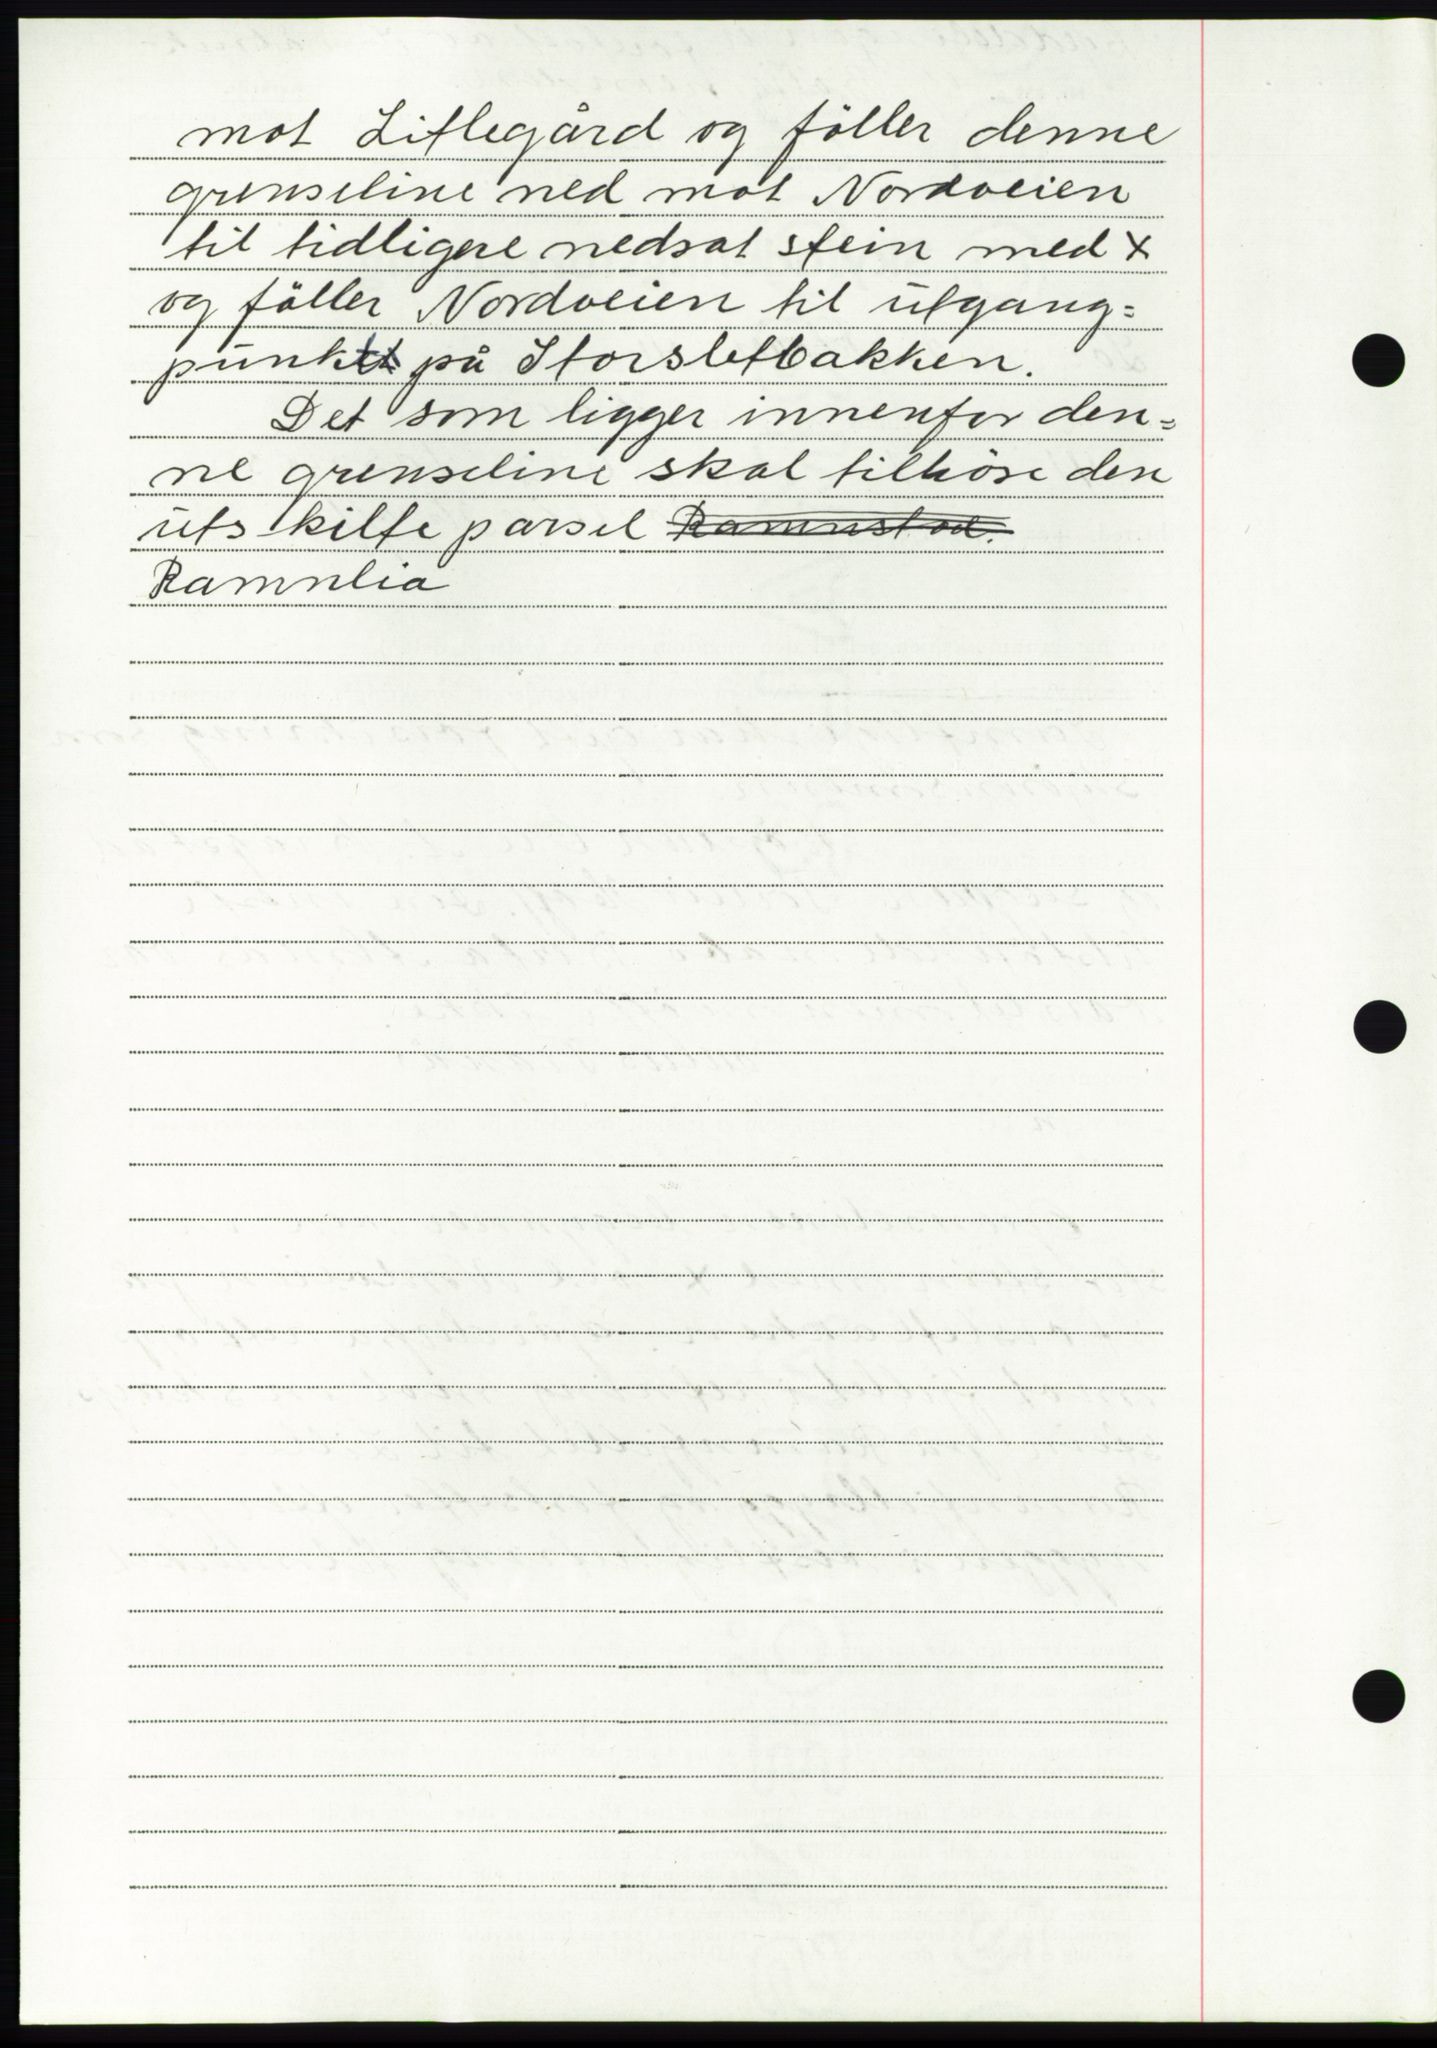 mot Litlegård og föller denne
grenseline ned mot Nordveien
til tidligere nedsat stein med x
og föller Nordveien til utgang=
punkt på Storsletbakken.
Det som ligger innenfor den=
ne grenseline skal tilhöre den
utskilte parsel ~~Ramnstad.~~
Ramnlia